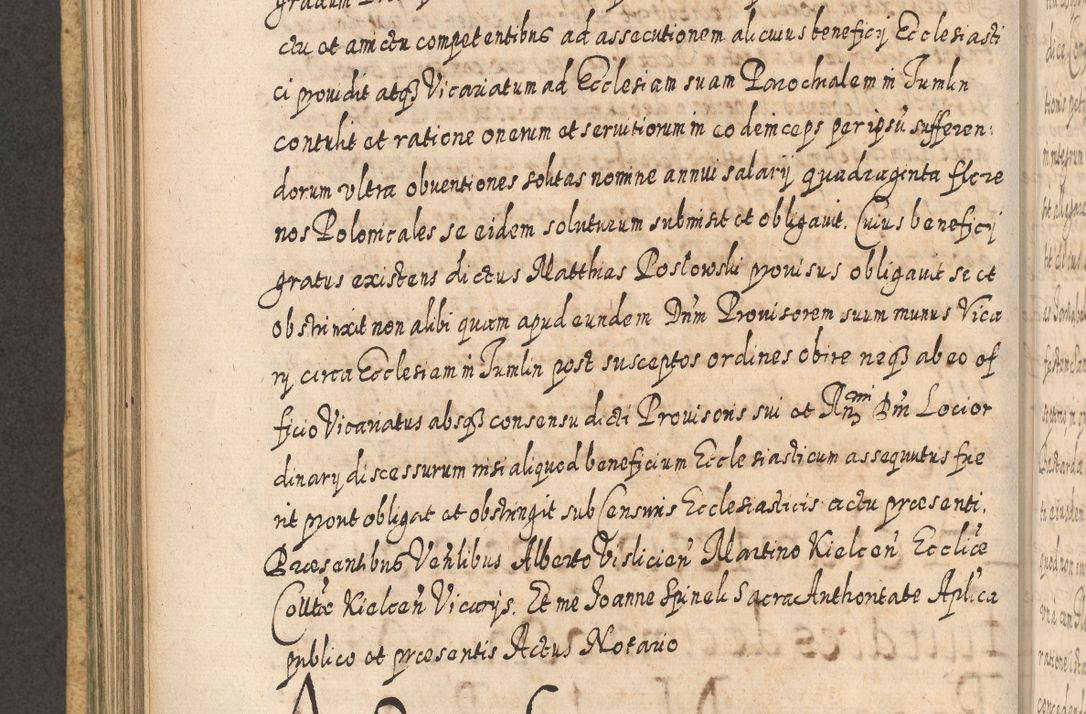 ctu et amictu competentibus ad assecutionem alicuius beneficij Ecclesiasti
ci providit atqȝ Vicariatum ad Ecclesiam suam Parochialem in Tumlin
contulit et ratione onerum et servitiorum in eo deinceps per ipsū sufferen:
dorum vltra obventiones solitas nomine annui salarij quadraginta flore
nos Polonicales se eidem soluturum submisit et obligavit. Cuius beneficij
gratus existens dictus Matthias Posłowski provisus obligavit se et
obstrinxit non alibi quam apud eundem Dnm Provisorem suum munus Vica
rij circa Ecclesiam in Tumlin post susceptos ordines obire neqȝ ab eo of
ficio Vicariatus absqȝ consensu dicti Provisoris sui et Rn̄dmi Dni Loci or
dinarij discessurum nisi aliquod beneficium Ecclesiasticum assequutus fue
rit prout obligat et obstringit sub Censuris Ecclesiasticis actu præsenti.
Præsentibus Venlibus Alberto Vislicien̄ Martino Kielcen̄ Eccliæ
Colltæ Kielcen̄ Vicarijs. Et me Joanne Spinek Sacra Authoritate Aplica
publico et præsentis Actus Notario